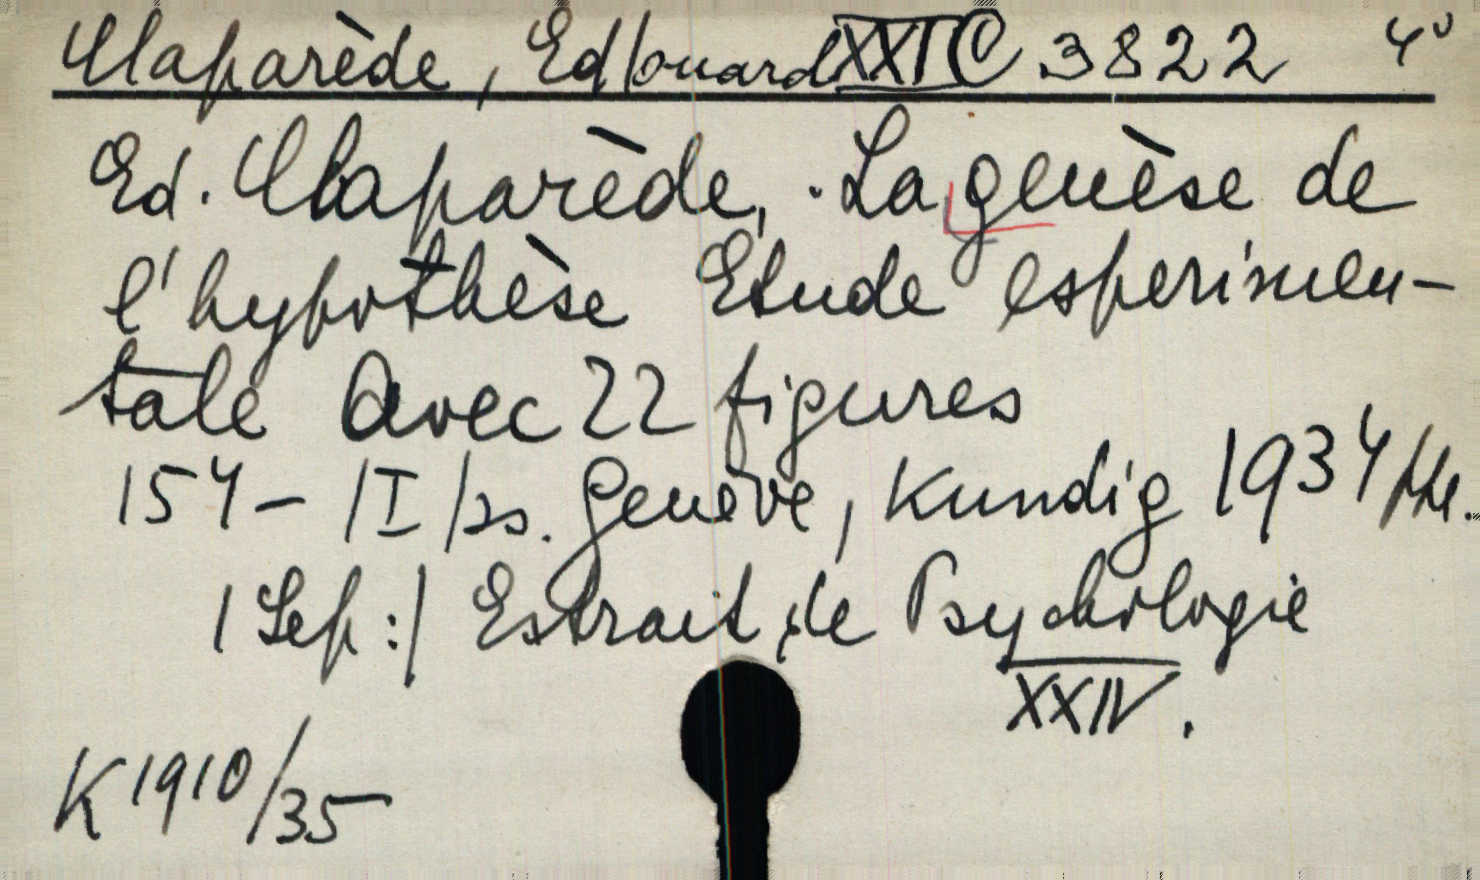 Claparède, Ed/ouard XXIC 3822 4°
Ed. Claparède, . La genèse de
l'hypothèse Etude esperimen-
tale Avec 22 figures
154 - /I/ ss. Genève, Kundig 1934
/Sep:/ Estrait de Psychologie
XXIV.
K 1910/35